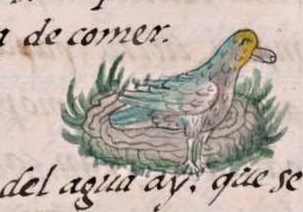 a de comer.
del agua ay, que se